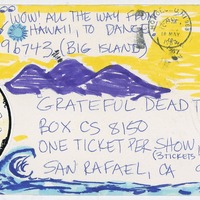 WOW! ALL THE WAY FROM
HAWAII, TO DANCE
96743 BIG ISLAND
GRATEFUL DEAD T
BOX CS 8150
ONE TICKET PER SHOW,
(3 TICKETS
SAN RAFAEL, CA